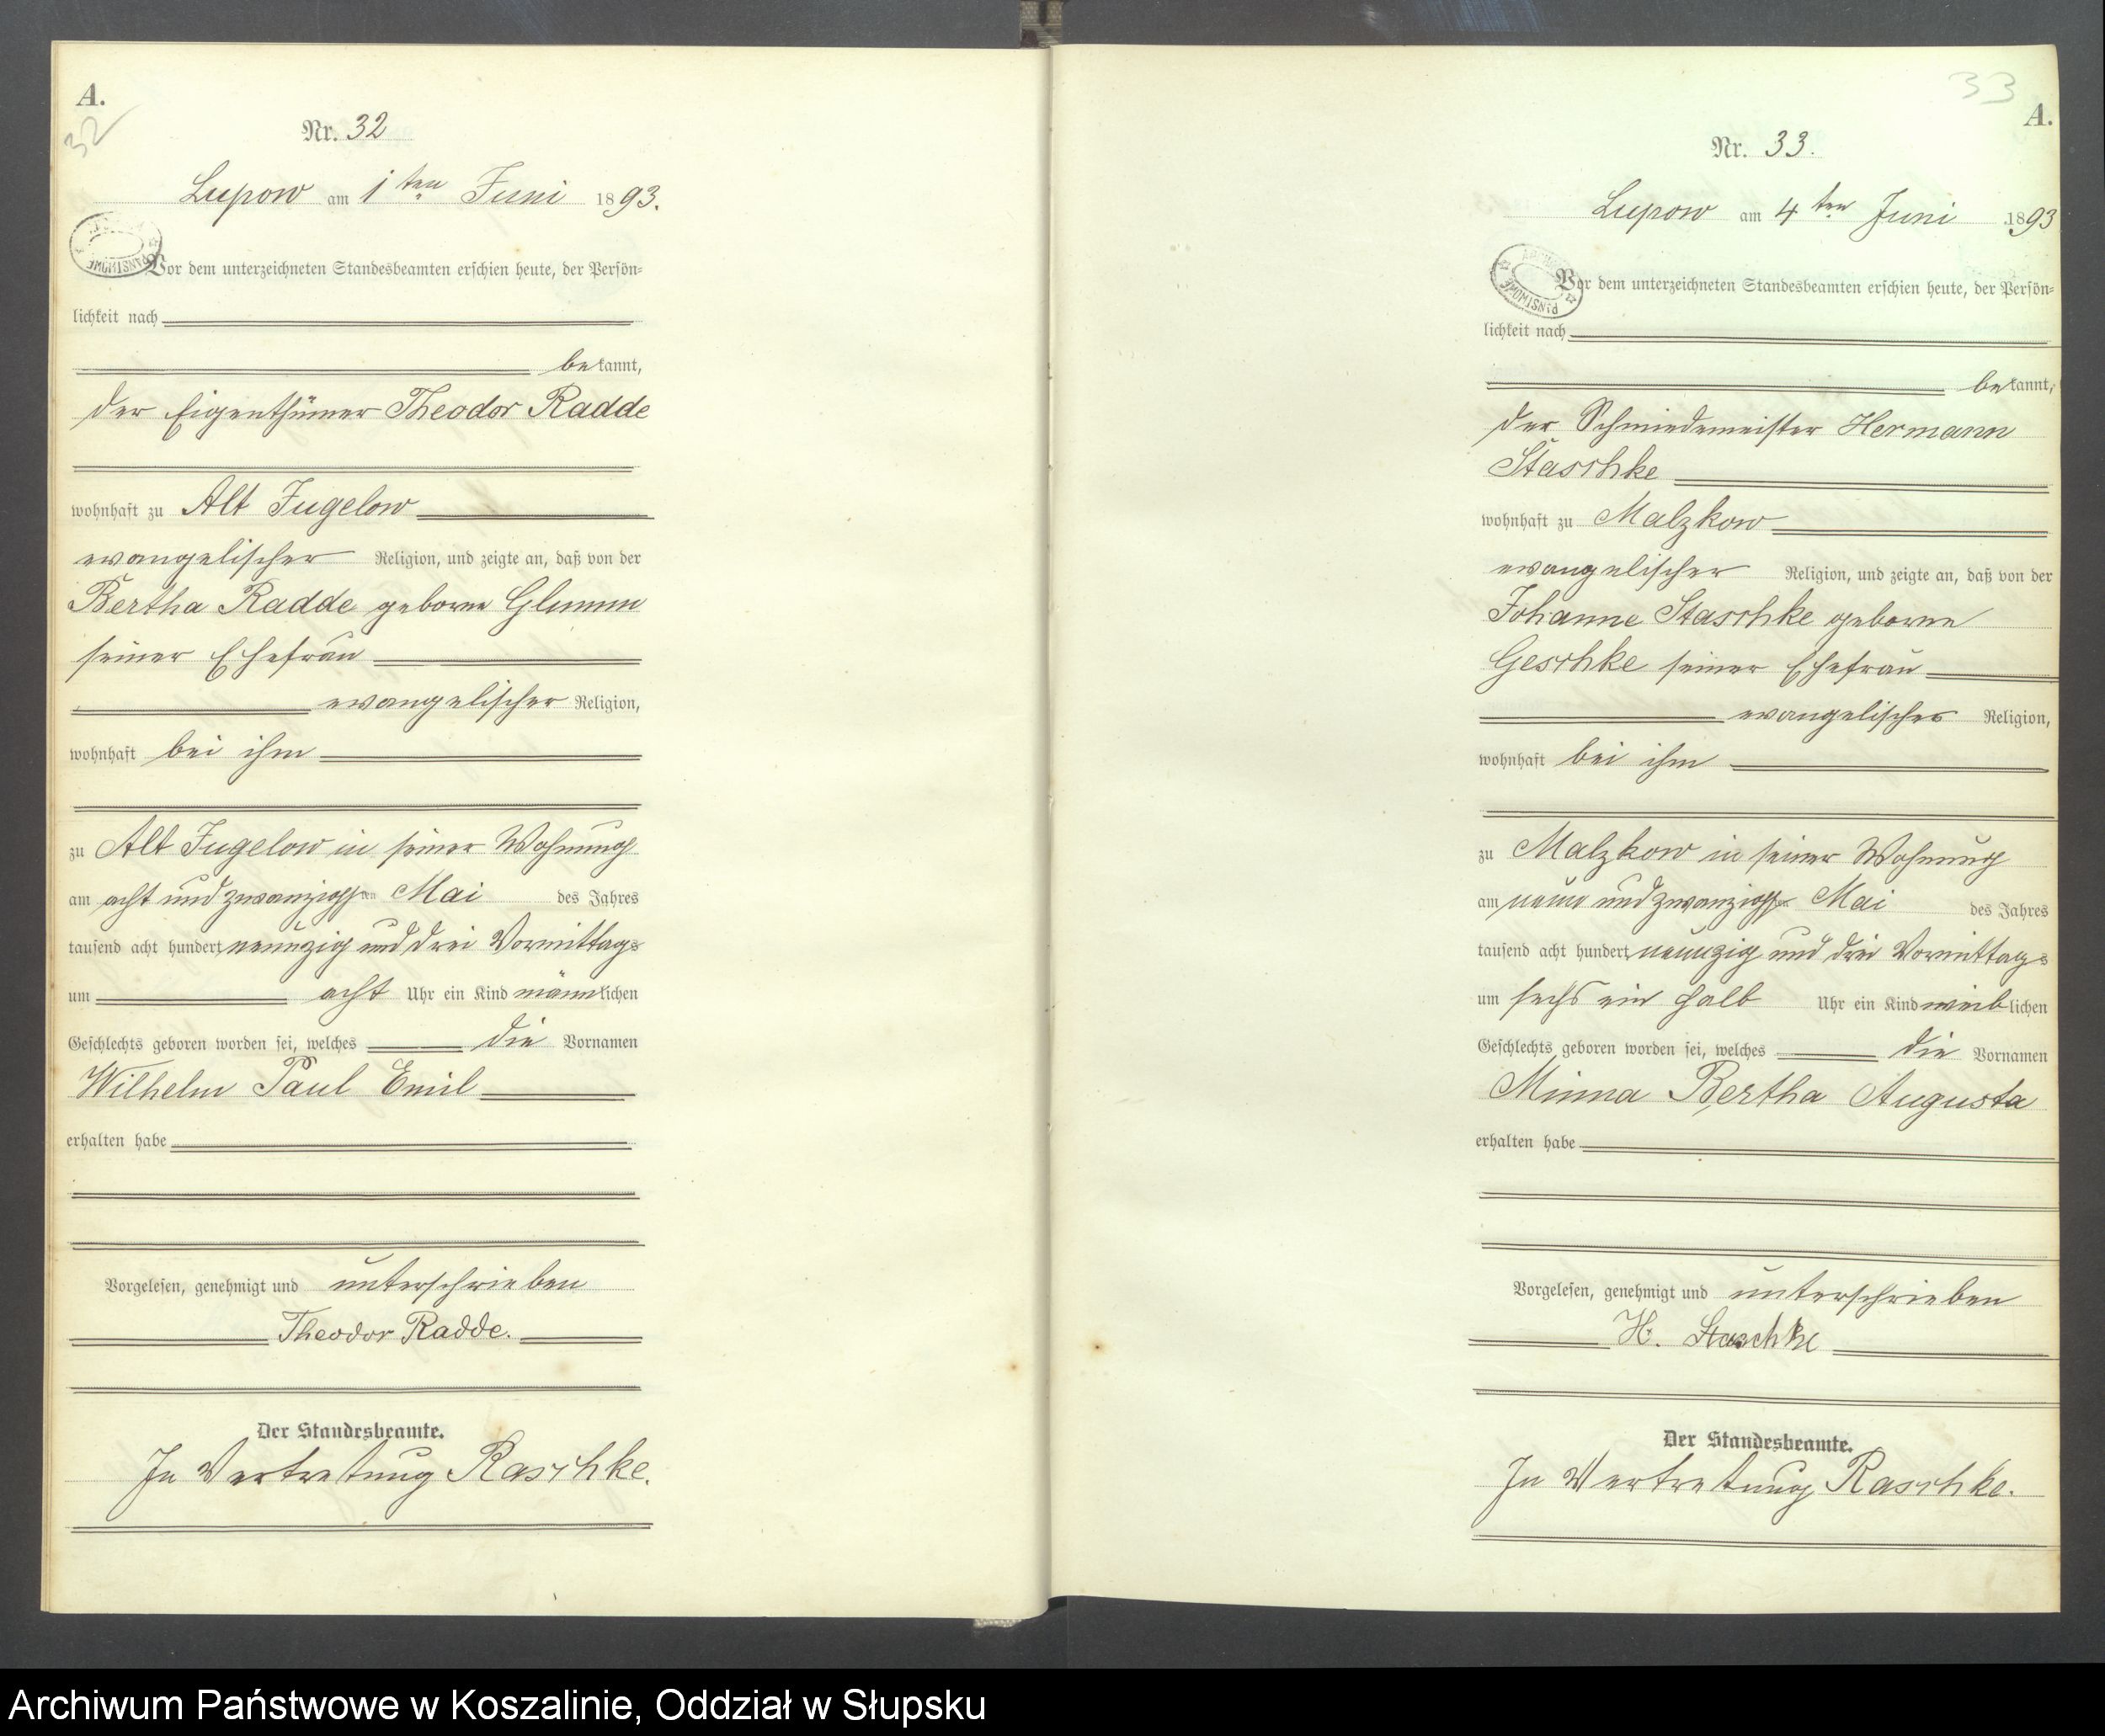 A.
32
Nr. 32
Lupow am 1ten Juni 1893.
Vor dem unterzeichneten Standesbeamten erschien heute, der Persön-
lichkeit nach
bekannt,
der Eigenthümer Theodor Radde
wohnhaft zu Alt Jugelow
evangelischer Religion, und zeigte an, daß von der
Bertha Radde geborne
seiner Ehefrau
evangelischer Religion,
wohnhaft bei ihm
zu Alt Jugelow in seiner Wohnung
am acht und zwanzigsten Mai des Jahres
tausend acht hundert neunzig und drei Vormittags
um acht Uhr ein Kind männlichen
Geschlechts geboren worden sei, welches die Vornamen
Wilhelm Paul Emil
erhalten habe
Vorgelesen, genehmigt und unterschrieben
Theodor Radde.
Der Standesbeamte.
In Vertretung Raschke.
33
A.
Nr. 33.
Lupow am 4ten Juni 1893
Vor dem unterzeichneten Standesbeamten erschien heute, der Persön-
lichkeit nach
bekannt,
der Schmiedemeister Hermann
Staschke
wohnhaft zu Malzkow
evangelischer Religion, und zeigte an, daß von der
Johanne Staschke geborne
Geschke seiner Ehefrau
evangelischer Religion,
wohnhaft bei ihm
zu Malzkow in seiner Wohnung
am neun und zwanzigsten Mai des Jahres
tausend acht hundert neunzig und drei Vormittags
um sechs ein halb Uhr ein Kind weiblichen
Geschlechts geboren worden sei, welches die Vornamen
Minna Bertha Augusta
erhalten habe
Vorgelesen, genehmigt und unterschrieben
H. Staschke
Der Standesbeamte.
In Vertretung Raschke.
Archiwum Państwowe w Koszalinie, Oddział w Słupsku